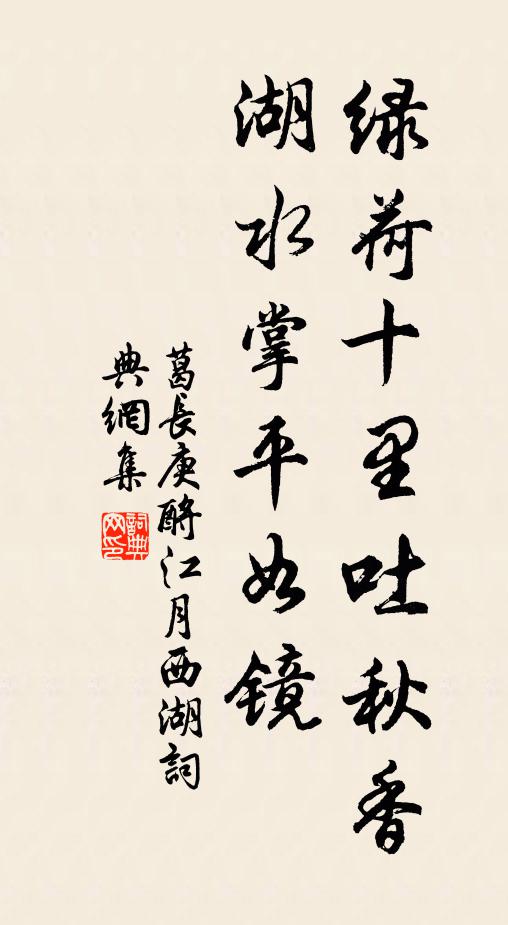 绿荷十里吐秋香
湖水掌平如镜
葛長庚酹江月西湖詞
典網集
詞典网印